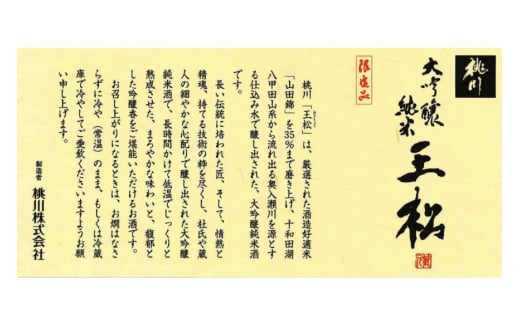 桃川
大吟醸
純米
王松
限定品
桃川「王松」は、厳選された酒造好適米
「山田錦」を35%まで磨き上げ、十和田湖
八甲田山系から流れ出る奥入瀬川を源とす
る仕込み水で醸し出された、大吟醸純米酒
です。
長い伝統に培われた匠、そして、情熱と
精魂、持てる技術の粋を尽くし、杜氏や蔵
人の細やかな心配りで醸し出された大吟醸
純米酒で、長時間かけて低温でじっくりと
熟成させた、まろやかな味わいと、馥郁と
した吟醸香をご堪能いただけるお酒です。
お召し上がりになるときは、お燗はなさ
らずに冷や（常温）のまま、もしくは冷蔵
庫で冷やしてご愛飲くださいますようお願
い申し上げます。
製造者 桃川株式会社